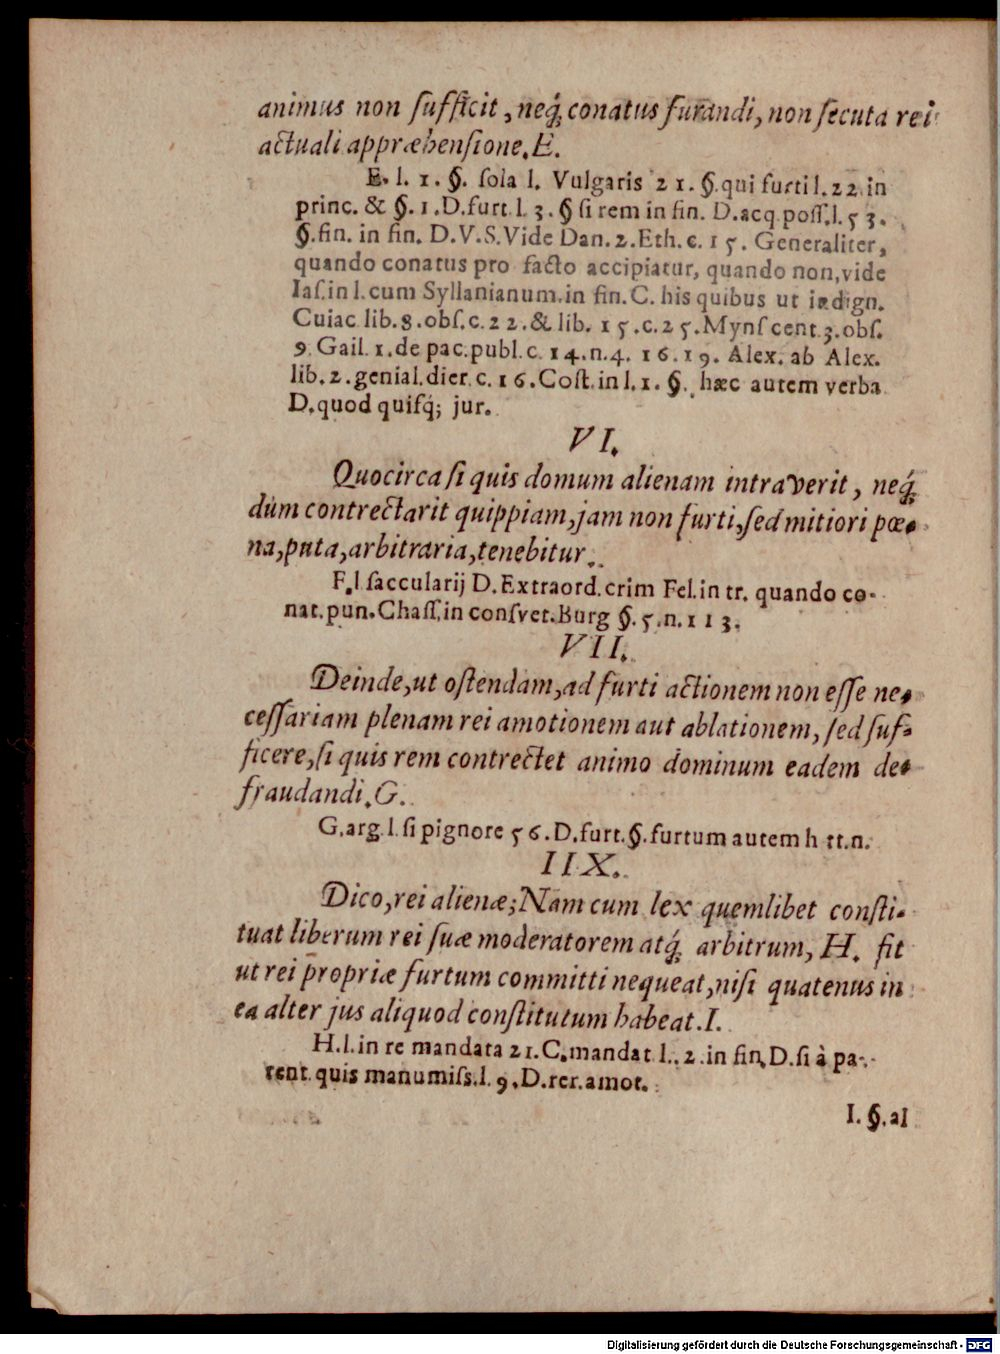 animus non ſufficit, neq́; conatus furandi, non ſecuta rei
actuali appræhenſione. E.
E. l. 1. §. ſola l. Vulgaris 21. §. qui furti l. 22 in
princ. & §. 1. D. furt. l. 3. § ſi rem in fin. D. acq. poſſ. l. 53.
§. fin. in fin. D. V. S. Vide Dan. 2. Eth. c. 15. Generaliter,
quando conatus pro facto accipiatur, quando non, vide
Iaſ. in l. cum Syllanianum. in fin. C. his quibus ut indign.
Cuiac lib. 8. obſ. c. 22. & lib. 15. c. 25. Mynſ cent. 3. obſ.
9. Gail. 1. de pac. publ. c. 14. n. 4. 16. 19. Alex. ab Alex.
lib. 2. genial. dier. c. 16. Coſt. in l. 1. §. hæc autem verba
D. quod quiſq́; jur.
VI.
Quocirca ſi quis domum alienam intraverit, neq́;
dùm contrectarit quippiam, jam non furti, ſed mitiori pœ-
na, puta, arbitraria, tenebitur.
F. l ſaccularij D. Extraord. crim Fel. in tr. quando co-
nat. pun. Chaſſ. in conſvet. Burg §. 5. n. 113.
VII.
Deinde, ut oſtendam, ad furti actionem non eſſe ne-
ceſſariam plenam rei amotionem aut ablationem, ſed ſuf-
ficere, ſi quis rem contrectet animo dominum eadem de-
fraudandi. G.
G. arg. l. ſi pignore 56. D. furt. §. furtum autem h tt. n.
IIX.
Dico, rei alienæ; Nam cum lex quemlibet conſti-
tuat liberum rei ſuæ moderatorem atq́; arbitrum, H. fit
ut rei propriæ furtum committi nequeat, niſi quatenus in
ea alter jus aliquod conſtitutum habeat. I.
H. l. in re mandata 21. C. mandat l. 2. in fin. D. ſi à pa-
rent. quis manumiſs. l. 9. D. rer. amot.
I. §. al
Digitalisierung gefördert durch die Deutsche Forschungsgemeinschaft - DFG